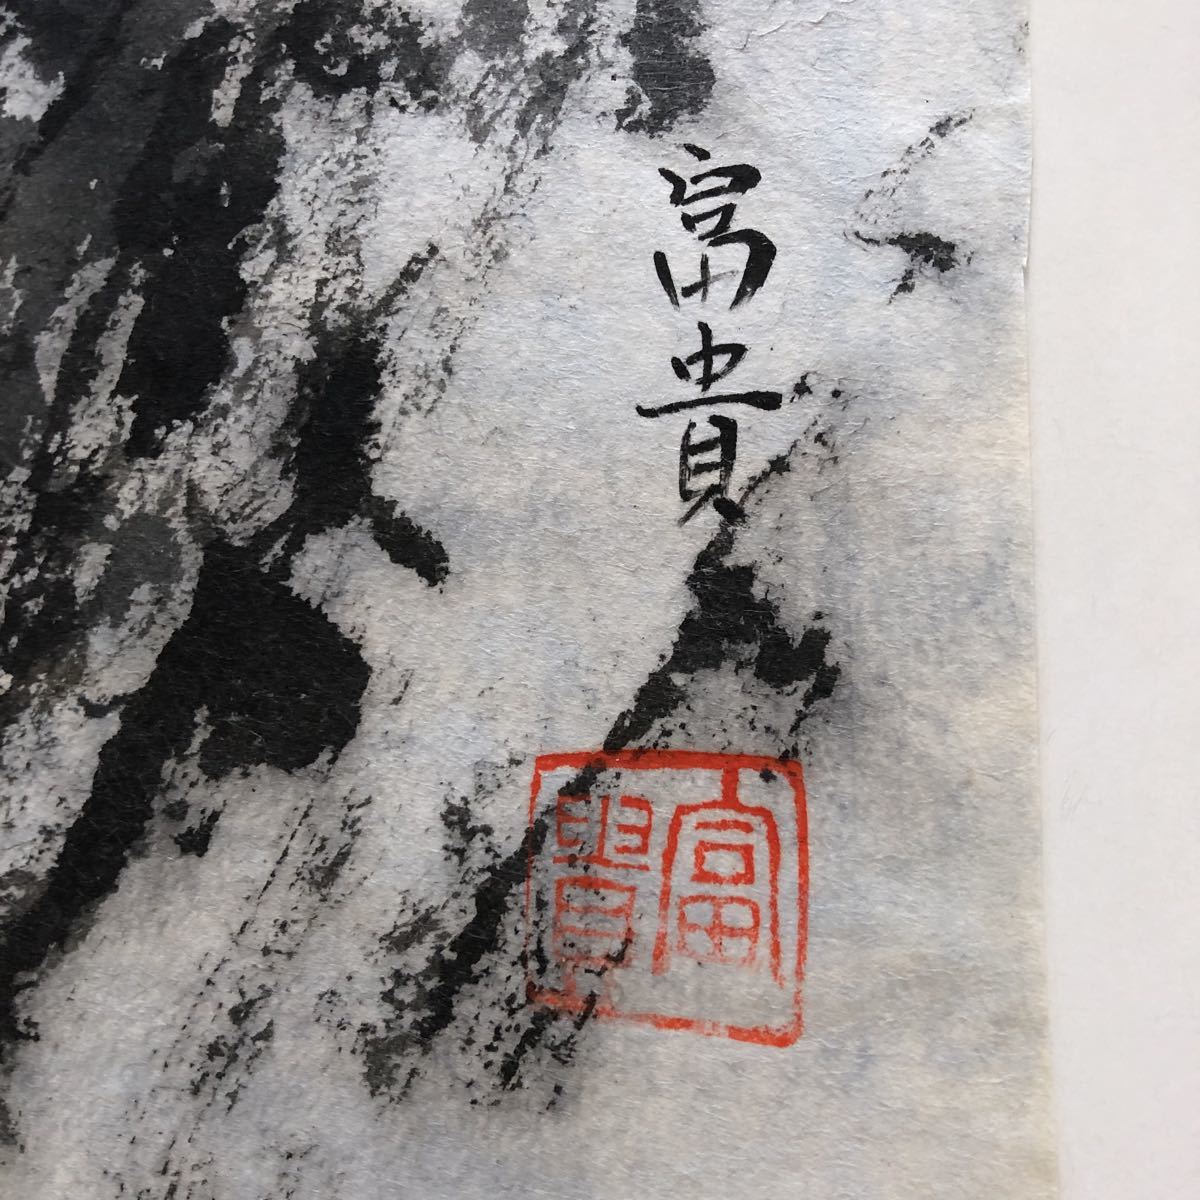 富貴
富貴